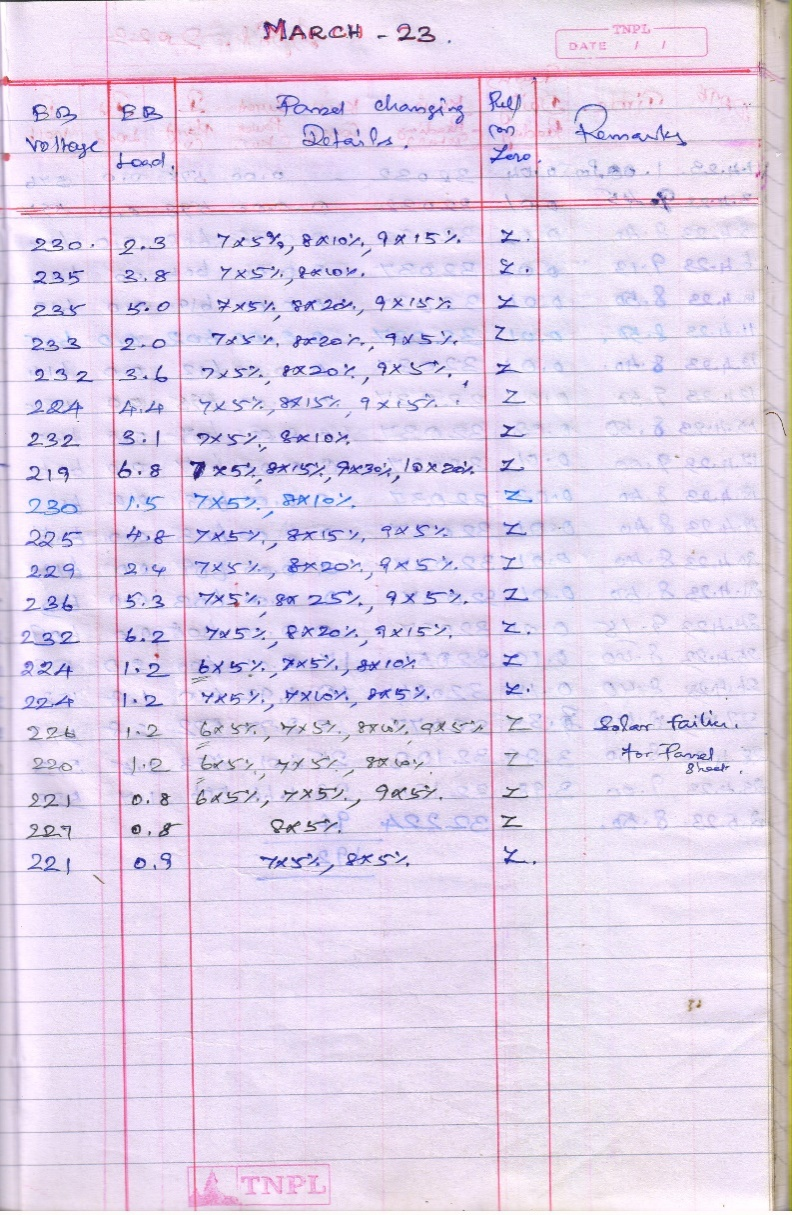 MARCH - 23.
TNPL
DATE / /
EB Voltage EB Load. Panel changing Details. Full (or) Zero. Remarks
230. 2.3 7x5%, 8x10%, 9x15%. Z.
235 3.8 7x5%, 8x10%. Z.
235 5.0 7x5%, 8x20%, 9x15%. Z
233 2.0 7x5%. 8x20%, 9x5%. Z
232 3.6 7x5%, 8x20%, 9x5%. Z
224 4.4 7x5%, 8x15%, 9x15%. Z
232 3.1 7x5%, 8x10%. Z
219 6.8 7x5%, 8x15%, 9x30%, 10x20%. Z
230 1.5 7x5%, 8x10%. Z.
225 4.8 7x5%, 8x15%, 9x5%. Z
229 2.4 7x5%, 8x20%, 9x5%. Z
236 5.3 7x5%, 8x25%, 9x5%. Z
232 6.2 7x5%, 8x20%, 9x15%. Z.
224 1.2 6x5%, 7x5%, 8x10% Z
224 1.2 7x5%, 7x10%, 8x5%. Z.
226 1.2 6x5%, 7x5%, 8x10%, 9x5% Z Solar
220 1.2 6x5%, 7x5%, 8x10%. Z for Panel
sheet.
221 0.8 6x5%, 7x5%, 9x5%. Z
227 0.8 8x5% Z
221 0.9 7x5%, 8x5%. Z.
TNPL